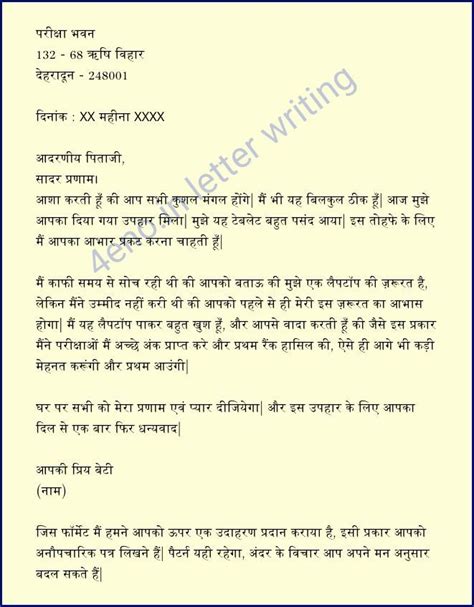 परीक्षा भवन
132 - 68 ऋषि विहार
देहरादून - 248001
दिनांक : XX महीना XXXX
आदरणीय पिताजी,
सादर प्रणाम।
आशा करती हूँ की आप सभी कुशल मंगल होंगे| मैं भी यह बिलकुल ठीक हूँ| आज मुझे
आपका दिया गया उपहार मिला| मुझे यह टेबलेट बहुत पसंद आया| इस तोहफे के लिए
मैं आपका आभार प्रकट करना चाहती हूँ|
मैं काफी समय से सोच रही थी की आपको बताऊ की मुझे एक लैपटॉप की ज़रूरत है,
लेकिन मैंने उम्मीद नहीं करी थी की आपको पहले से ही मेरी इस ज़रूरत का आभास
होगा| मैं यह लैपटॉप पाकर बहुत खुश हूँ, और आपसे वादा करती हूँ की जैसे इस प्रकार
मैंने परीक्षाओं मैं अच्छे अंक प्राप्त करे और प्रथम रैंक हासिल की, ऐसे ही आगे भी कड़ी
मेहनत करूंगी और प्रथम आउंगी|
घर पर सभी को मेरा प्रणाम एवं प्यार दीजियेगा| और इस उपहार के लिए आपका
दिल से एक बार फिर धन्यवाद|
आपकी प्रिय बेटी
(नाम)
जिस फॉर्मेट मैं हमने आपको ऊपर एक उदाहरण प्रदान कराया है, इसी प्रकार आपको
अनौपचारिक पत्र लिखने हैं| पैटर्न यही रहेगा, अंदर के विचार आप अपने मन अनुसार
बदल सकते हैं|
4eno.in letter writing